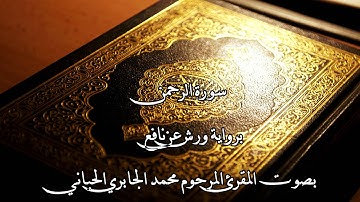 سورة الرحمن
برواية ورش عن نافع
بصوت المقرئ المرحوم محمد الجابري الحياني